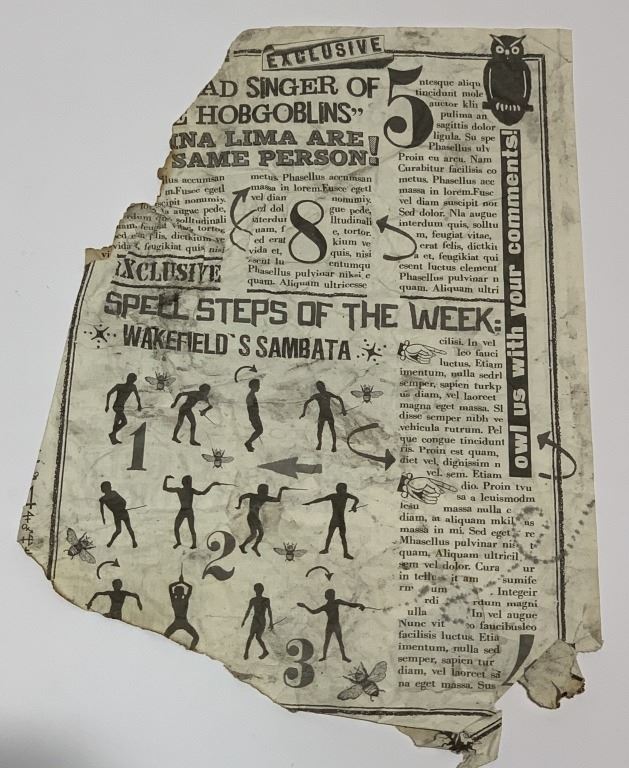 EXCLUSIVE
AD SINGER OF
HOBGOBLINS”
NA LIMA ARE
SAME PERSON!
llus accumsan
m.Fusce egetl
scipit nonumiy.
la augue pede,
rdum quc solltudinali
uam, feugiat vitae, tortor.
sed erat felis, dictkium ve
vida t, feugikiat quis nisi
vi
metus. Phasellus accumsan
massa in lorem.Fusce egetl
vel dian nonumiy.
ed dol gue pede,
iterdui ltudinali
uam, f e, tortor.
ed erat kium ve
vida et, quis, nisi
esent lu entumqu
Phasellus pulvinar niksi e
quam. Aliquam ultricesse
8
5
ntesque aliqu
tincidunt mole
auctor klin
pulima an
sagittis dolor
ligula. Su spe
Phasellus ulv
Proin eu arcu. Nam
Curabitur facilisis co
metus. Phasellus acc
massa in lorem.Fusc
vel diam suscipit not
Sed dolor. Nla augue
interdum quis, solltu
m, feugiat vitae,
erat felis, dictkit
a et, feugikiat qui
esent luctus element
Phasellus pulvinar n
quam. Aliquam ultri
EXCLUSIVE
SPELL STEPS OF THE WEEK:
WAKEFIELD`S SAMBATA
1
2
3
cilisi. In vel
leo fauci
luctus. Etiam
imentum, nulla sedrl
semper, sapien turkp
us diam, vel laoreet
magna eget massa. Sl
disse semper nibh ve
vehicula rutrum. Pel
que congue tincidunt
ris. Proin est quam,
diet vel, dignissim n
vel. sem. Etiam
dio. Proin tvu
sa a leuismodm
massa nulla c
diam, at aliquam mkil us
massa in mi. Sed eget re
Mhasellus pulvinar nis t
quam, Aliquam ultricil
sem vel dolor. Cura ur
in tellu it am sumife
um Integeir
rdi rdum magni
ulla In vel augue
Nunc vit o faucibusleo
facilisis luctus. Etia
imentum, nulla sed
semper, sapien tur
diam, vel laoreet sa
na eget massa. Sus
owl us with your comments!